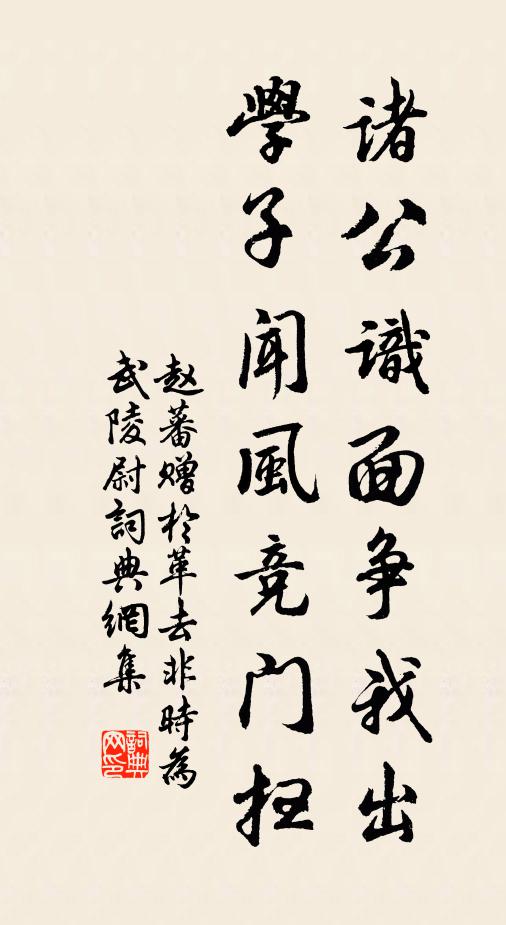 諸公識面争我出
學子聞風竞门抂
赵蕃赠於革去非時為
武陵尉詞典網集
詞典
网印